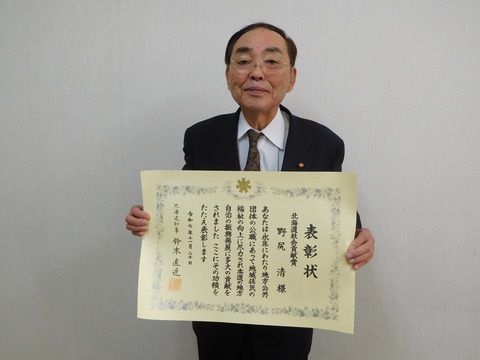 表彰状
北海道社会貢献賞
野尻 清 様
あなたは永年にわたり地方公共
団体の公職にあって地域住民の
福祉の向上に尽力され本道の地方
自治の振興発展に多大の貢献を
されました ここにその功績を
たたえ表彰します
令和七年十一月二十日
北海道知事 鈴木直道